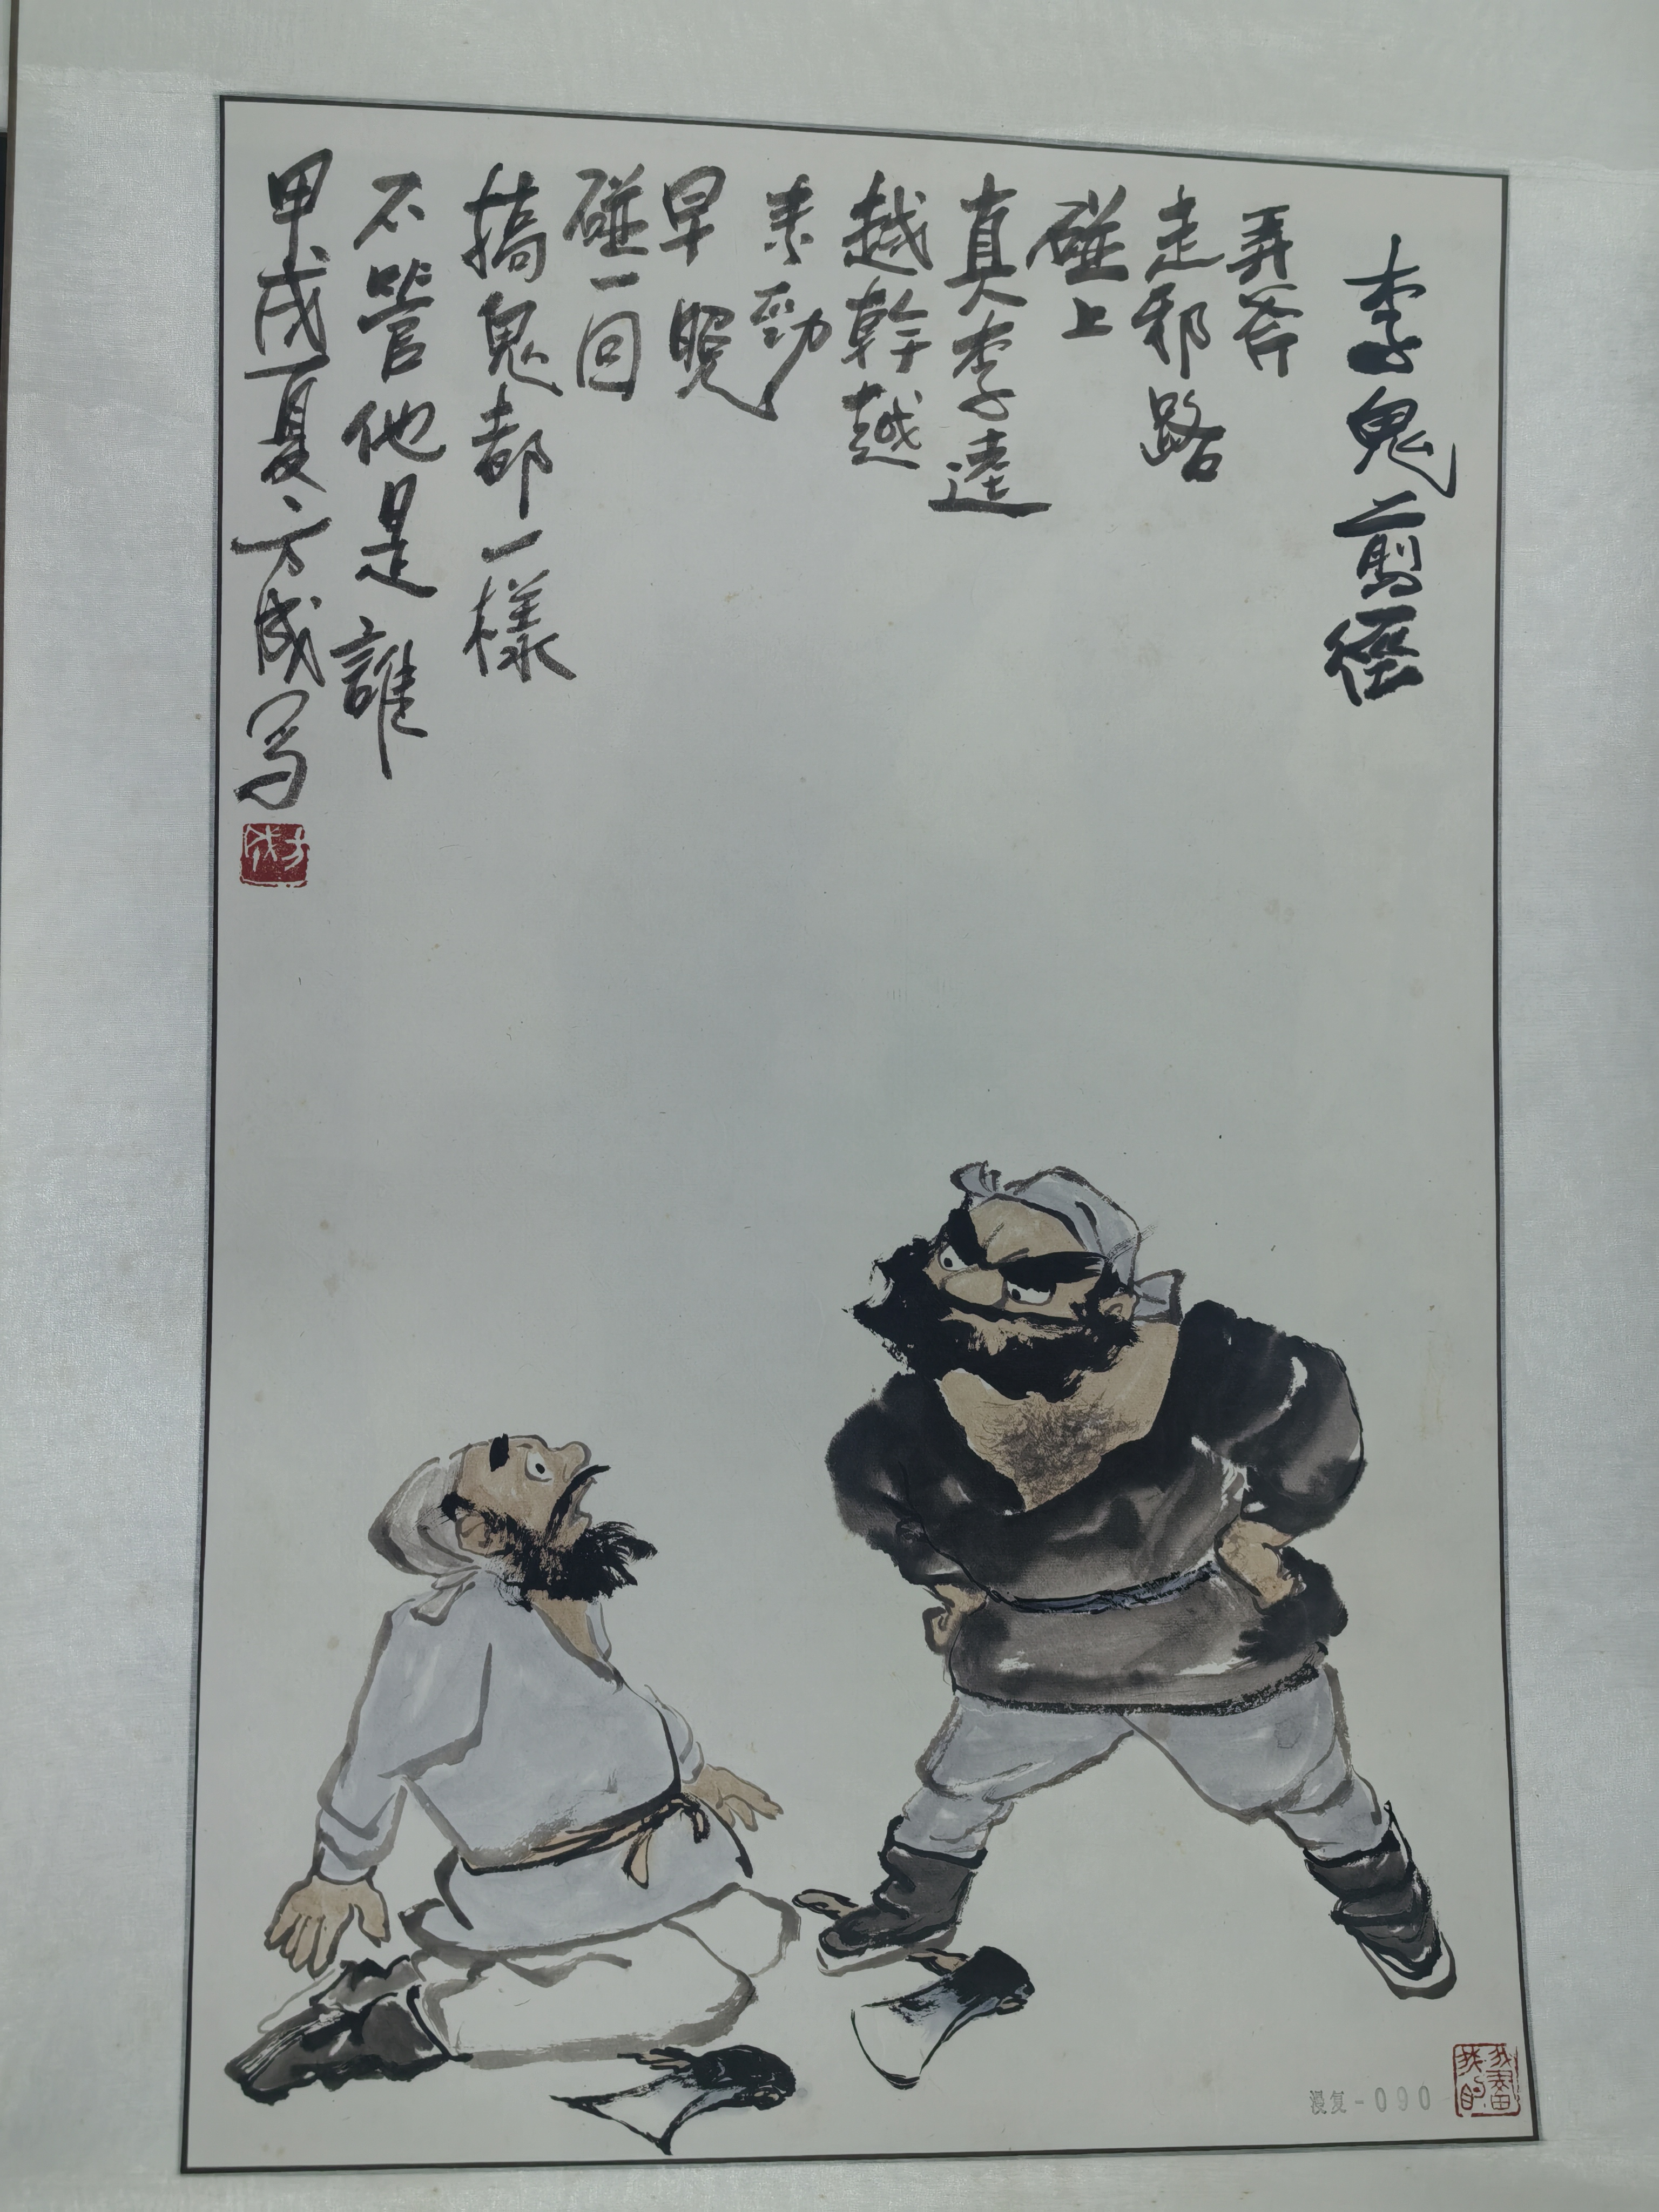 李鬼剪徑
弄斧
走邪路
碰上
真李逵
越幹越
来勁
早晚
碰一回
搞鬼都一樣
不管他是誰
甲戌夏方成写
方成
漫复-090
我畫我的